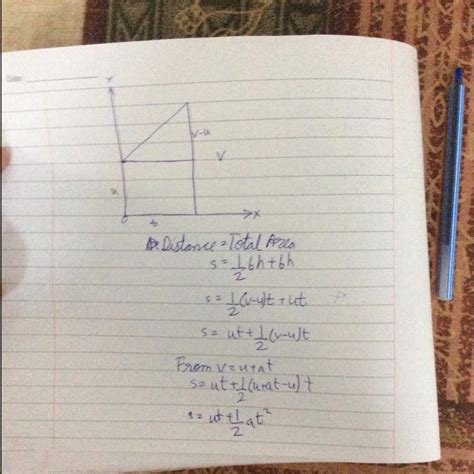 Date:
Y
v-u
V
u
O
t
X
Distance = Total Area
s = 1/2 bh + bh
s = 1/2 (v-u)t + ut
s = ut + 1/2 (v-u)t
From v = u + at
s = ut + 1/2 (u+at-u) t
s = ut + 1/2 at²